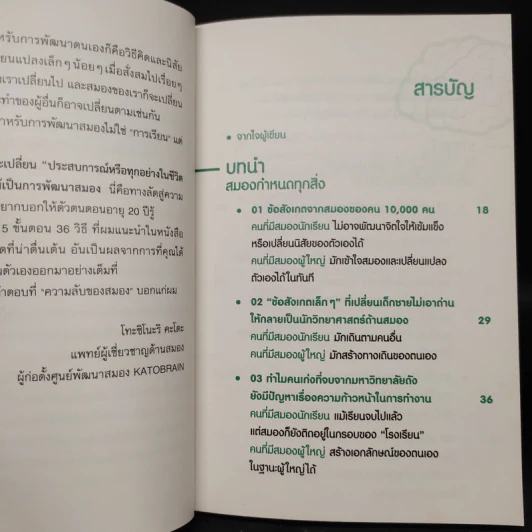 หรับการพัฒนาตนเองก็คือวิธีคิดและนิสัย
ยนแปลงเล็กๆ น้อยๆ เมื่อสั่งสมไปเรื่อยๆ
เราเปลี่ยนไป และสมองของเราก็จะเปลี่ยน
ะทำของผู้อื่นก็อาจเปลี่ยนตามเช่นกัน
ำหรับการพัฒนาสมองไม่ใช่ "การเรียน" แต่
ะเปลี่ยน "ประสบการณ์หรือทุกอย่างในชีวิต
ป็นการพัฒนาสมอง นี่คือทางลัดสู่ความ
ยากบอกให้ตัวตนตอนอายุ 20 ปีรู้
5 ขั้นตอน 36 วิธี ที่ผมแนะนำในหนังสือ
ดที่น่าตื่นเต้น อันเป็นผลจากการที่คุณได้
นตัวเองออกมาอย่างเต็มที่
ำตอบที่ "ความลับของสมอง" บอกแก่ผม
โทะชิโนะริ คะโตะ
แพทย์ผู้เชี่ยวชาญด้านสมอง
ผู้ก่อตั้งศูนย์พัฒนาสมอง KATOBRAIN
สารบัญ
• จากใจผู้เขียน
บทนำ
สมองกำหนดทุกสิ่ง
• 01 ข้อสังเกตจากสมองของคน 10,000 คน 18
คนที่มีสมองนักเรียน ไม่อาจพัฒนาจิตใจให้เข้มแข็ง
หรือเปลี่ยนนิสัยของตัวเองได้
คนที่มีสมองผู้ใหญ่ มักเข้าใจสมองและเปลี่ยนแปลง
ตัวเองได้ในทันที
• 02 "ข้อสังเกตเล็กๆ" ที่เปลี่ยนเด็กชายไม่เอาถ่าน
ให้กลายเป็นนักวิทยาศาสตร์ด้านสมอง 29
คนที่มีสมองนักเรียน มักเดินตามคนอื่น
คนที่มีสมองผู้ใหญ่ มักสร้างทางเดินของตนเอง
• 03 ทำไมคนเก่งที่จบจากมหาวิทยาลัยดัง
ยังมีปัญหาเรื่องความก้าวหน้าในการทำงาน 36
คนที่มีสมองนักเรียน แม้เรียนจบไปแล้ว
แต่สมองก็ยังติดอยู่ในกรอบของ "โรงเรียน"
คนที่มีสมองผู้ใหญ่ สร้างเอกลักษณ์ของตนเอง
ในฐานะผู้ใหญ่ได้